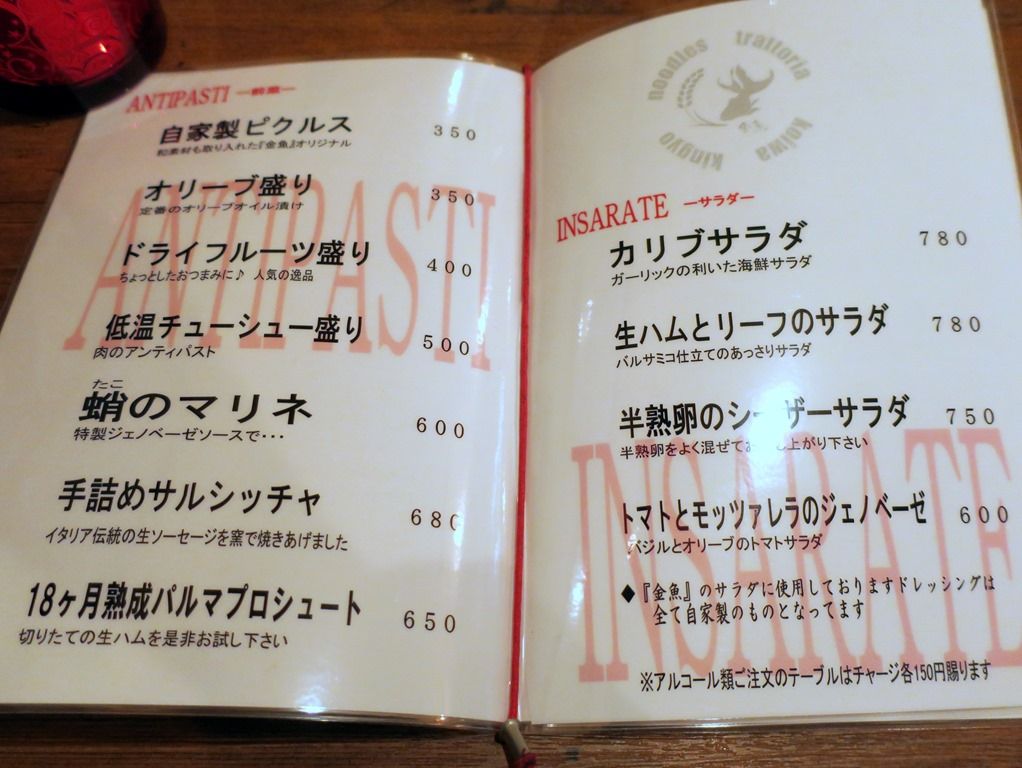 ANTIPASTI ー前菜ー
自家製ピクルス 350
和素材も取り入れた『金魚』オリジナル
オリーブ盛り 350
定番のオリーブオイル漬け
ドライフルーツ盛り 400
ちょっとしたおつまみに♪ 人気の逸品
低温チューシュー盛り 500
肉のアンティパスト
たこ
蛸のマリネ 600
特製ジェノベーゼソースで・・・
手詰めサルシッチャ 680
イタリア伝統の生ソーセージを窯で焼きあげました
18ヶ月熟成パルマプロシュート 650
切りたての生ハムを是非お試し下さい
ANTIPASTI
noodles trattoria
kingyo koiwa
INSARATE ーサラダー
カリブサラダ 780
ガーリックの利いた海鮮サラダ
生ハムとリーフのサラダ 780
バルサミコ仕立てのあっさりサラダ
半熟卵のシーザーサラダ 750
半熟卵をよく混ぜてお し上がり下さい
トマトとモッツァレラのジェノベーゼ 600
バジルとオリーブのトマトサラダ
◆『金魚』のサラダに使用しておりますドレッシングは
全て自家製のものとなってます
※アルコール類ご注文のテーブルはチャージ各150円賜ります
INSARATE